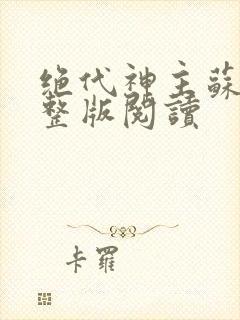 绝代神主蘇
整版閱讀
卡羅